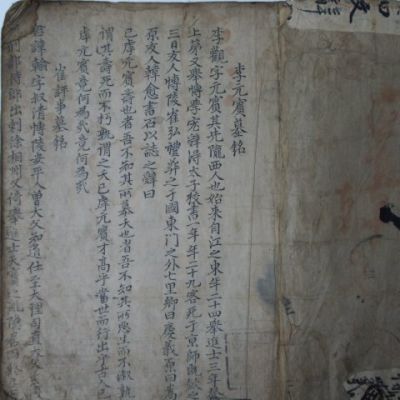 李元賓墓銘
李觀字元賓其先隴西人也始來自江之東年二十四舉進士三年登
上第又舉博學宏辭得太子校書一年年二十九客死于京師既斂之
三日友人博陵崔弘禮葬之于國東門之外七里鄉曰慶義原曰嵩
原友人韓愈書石以誌之辭曰
已虖元賓壽也者吾不知其所慕夭也者吾不知其所惡生而不淑孰
謂其壽死而不朽孰謂之夭已虖元賓才高乎當世而行出乎古人已
虖元賓竟何為哉竟何為哉
崔評事墓銘
君諱翰字叔清博陵安平人曾大父知道仕至大理司直大父玄
刑部侍郎出刺徐相州父倚舉進士天寶之亂隱居而終